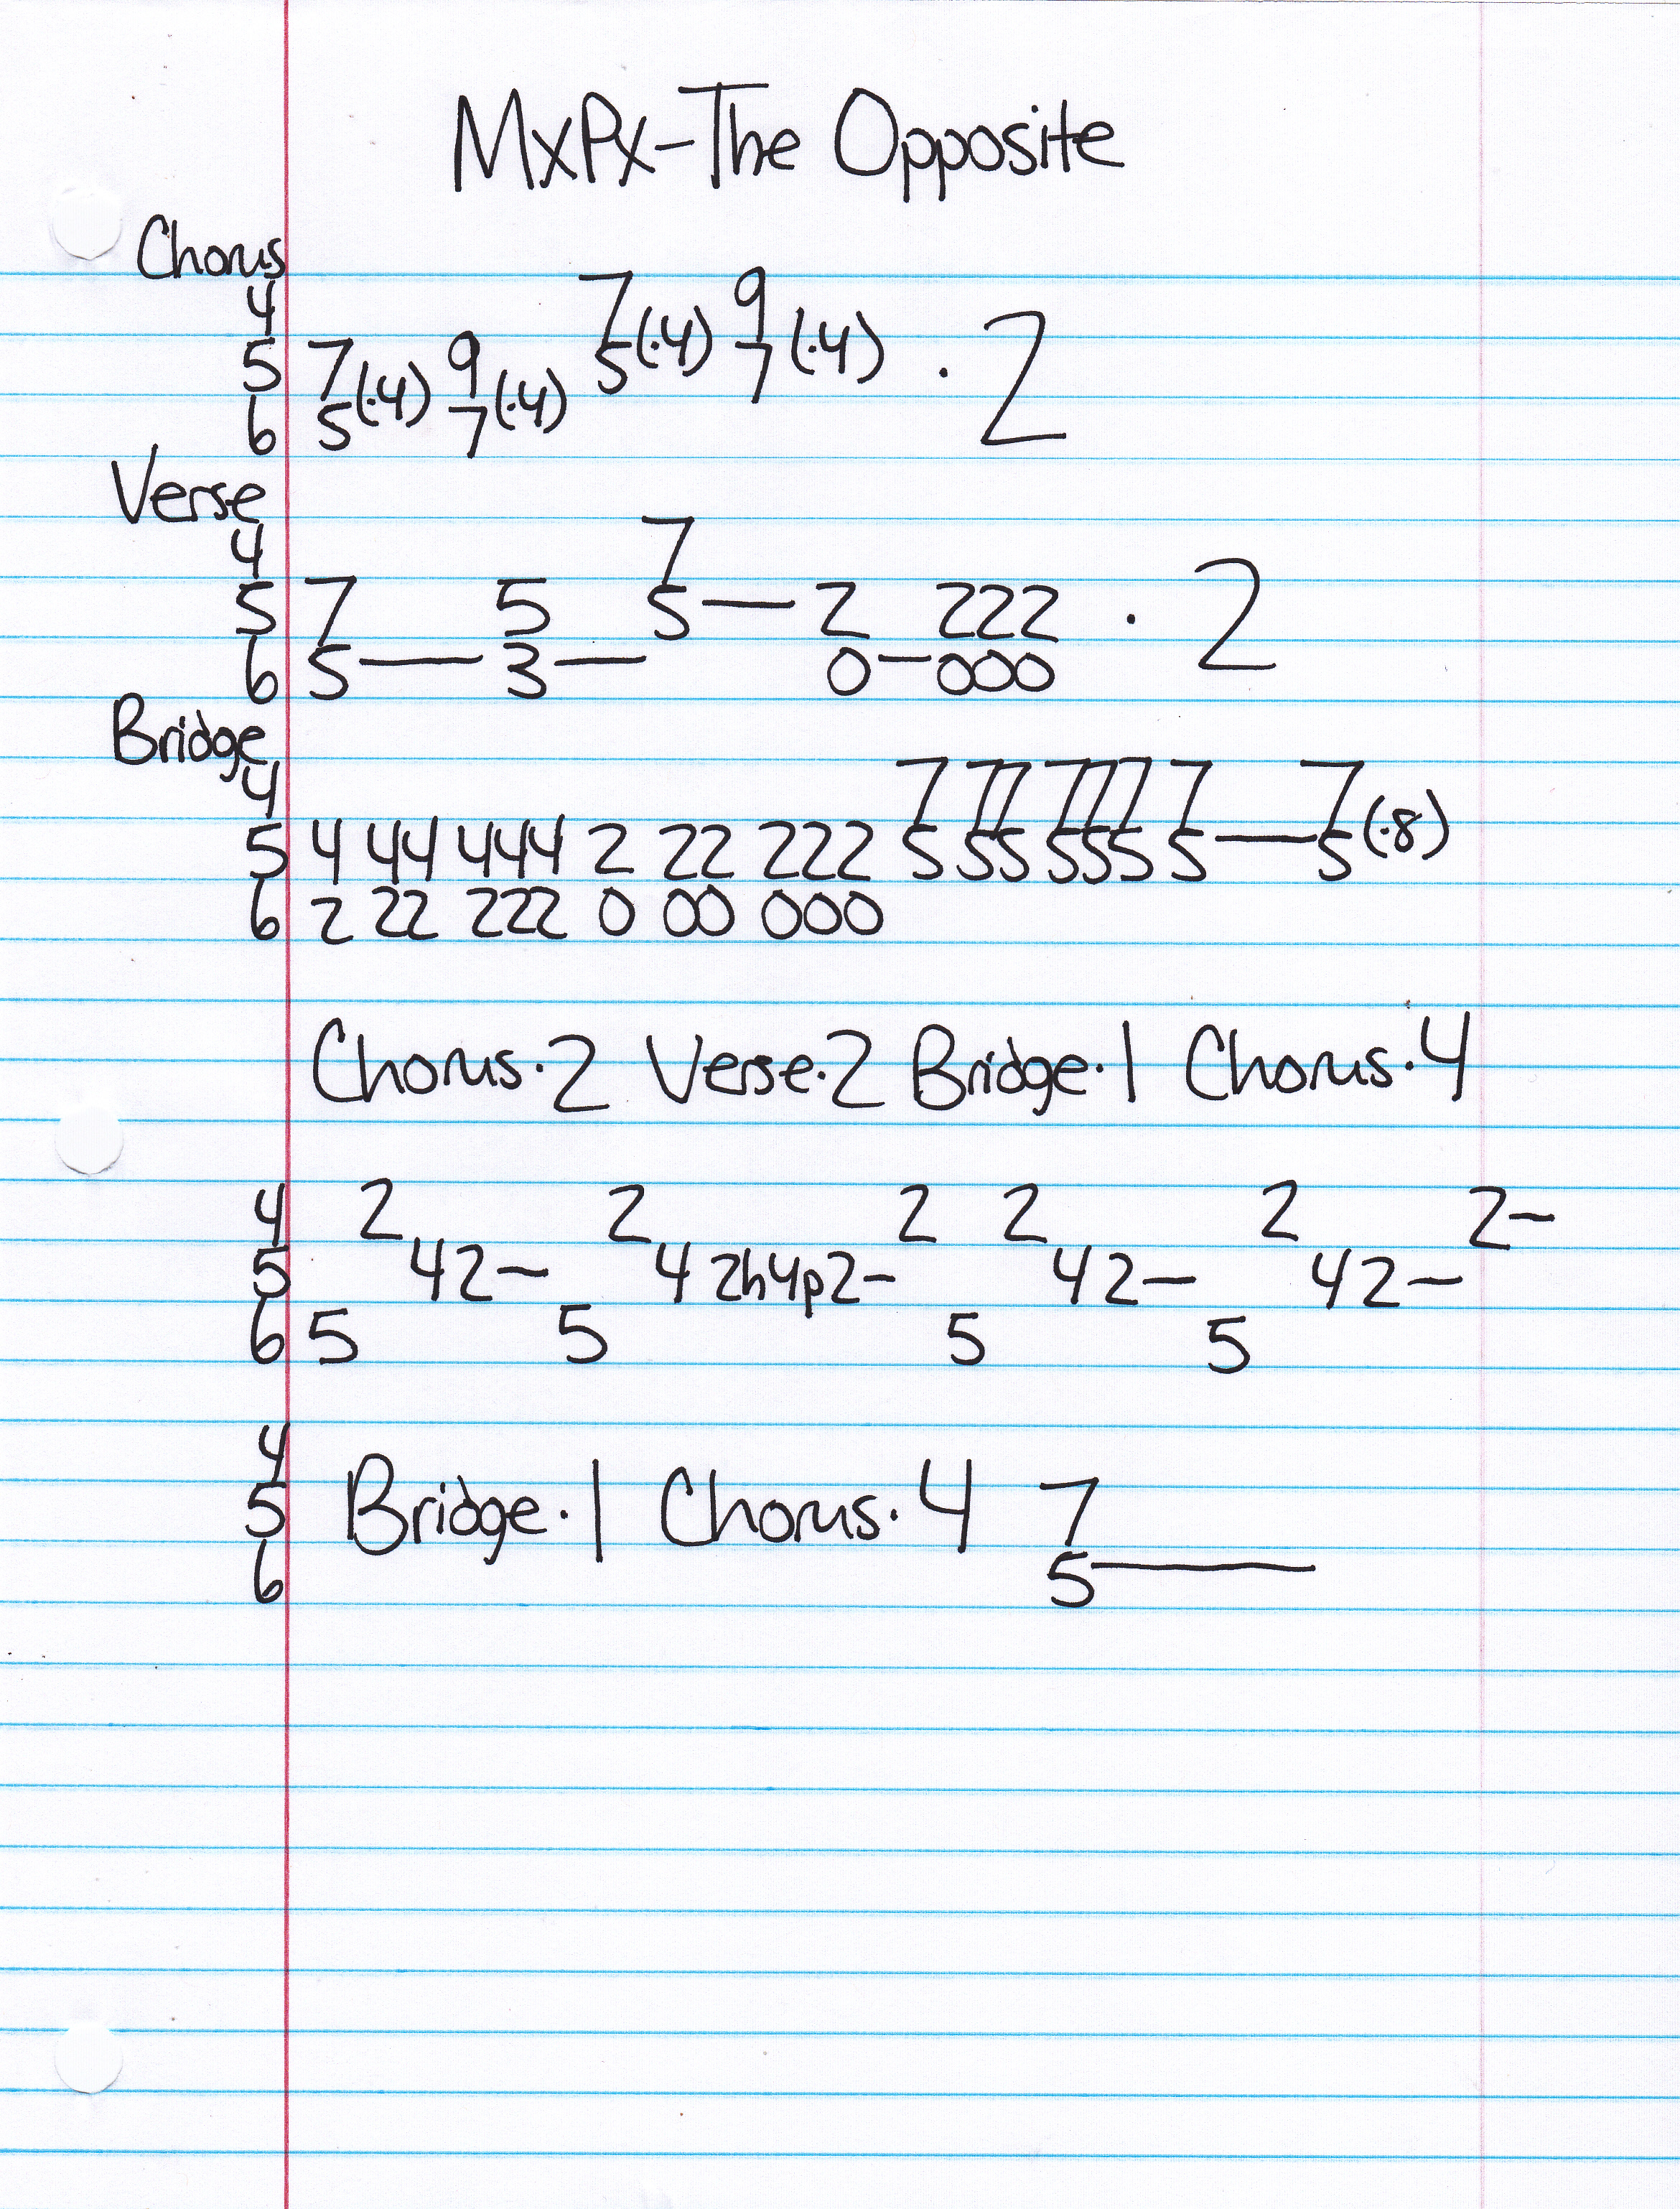 MxPx-The Opposite
Chorus
4 7(·4) 9(·4)
5 7(·4) 9(·4) 5 7 · 2
6 5 7
Verse
4 7
5 7 5 5— 2 222 · 2
6 5— 3— 0—000
Bridge
4 7 77 777 7 7(·8)
5 4 44 444 2 22 222 5 55 555 5—5
6 2 22 222 0 00 000
Chorus·2 Verse·2 Bridge·1 Chorus·4
4 2 2 2 2 2 2–
5 42– 4 2h4p2– 42– 42–
6 5 5 5 5
4
5 Bridge·1 Chorus·4 7
6 5—